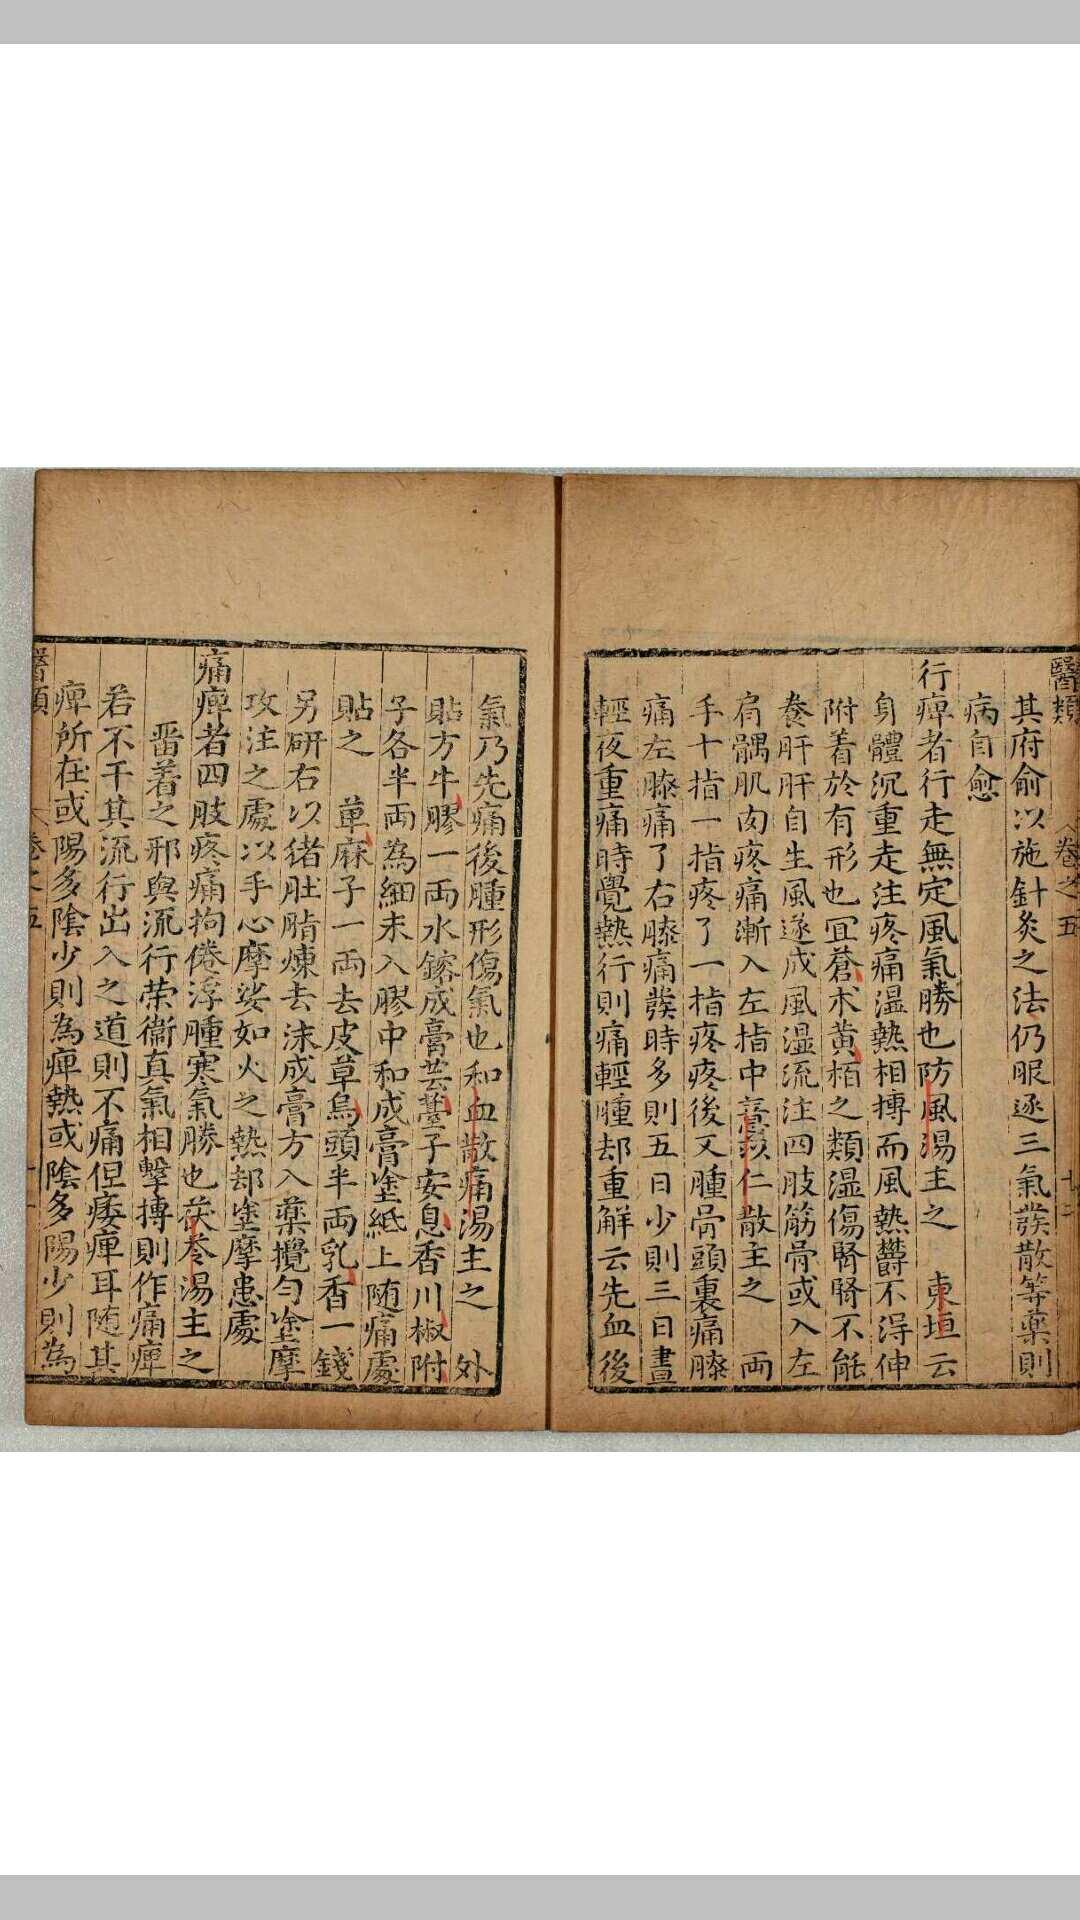 醫類
卷之五
其府俞以施針灸之法仍服逐三氣發散等藥則
病自愈
行痺者行走無定風氣勝也防風湯主之　東垣云
身體沉重走注疼痛溫熱相摶而風熱欝不淂伸
附着於有形也冝蒼术黄栢之類濕傷腎腎不能
養肝肝自生風遂成風濕流注四肢筋骨或入左
肩髃肌肉疼痛漸入左指中薏苡仁散主之　両
手十指一指疼了一指疼疼後又腫骨頭裏痛膝
痛左膝痛了右膝痛發時多則五日少則三日晝
輕夜重痛時覺熱行則痛輕腫却重解云先血後
氣乃先痛後腫形傷氣也和血散痛湯主之　外
貼方牛膠一両水鎔成膏芸薹子安息香川椒附
子各半両為細末入膠中和成膏塗紙上随痛處
貼之　萆麻子一両去皮草烏頭半両乳香一錢
另研右以猪肚脂煉去沫成膏方入藥攪勻塗摩
攻注之處以手心摩娑如火之熱却塗摩患處
痛痺者四肢疼痛拘倦浮腫寒氣勝也茯苓湯主之
畱着之邪與流行荣衞真氣相擊摶則作痛痺
若不干其流行出入之道則不痛但痿痺耳随其
痺所在或陽多陰少則為痺熱或陰多陽少則為
醫類
卷之五